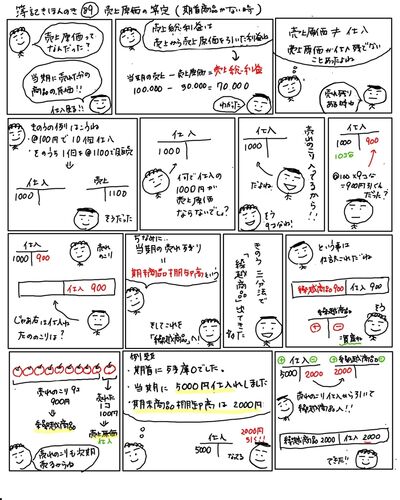 簿記きほんのき 89 売上原価の算定（期首商品がない時）
売上原価って
なんだった？
当期に売れた分の
商品の原価!!
仕入見る!!
売上総利益は
売上から売上原価を引いた利益ね
当期の売上 − 売上原価 = 売上総利益
100.000 − 30.000 = 70.000
わかった
売上原価 ≠ 仕入
売上原価が仕入残でない
ことあったよね
売れ残り
ある時ね
きのうの例はこうね
・@100円で10個仕入
・そのうち1個を@1100で販売
仕入
1000
売上
1100
そうだった
仕入
1000
何で仕入の
1000円が
売上原価
ならないでしょ？
仕入
1000
売れのこり入ってるから!!
だよね
そう
9コなね!
仕入
1000 900
10コ分
@100×9コな
=900円引くん
だった？
仕入
1000 900
売れ
のこり
仕入 900
じゃあ右は仕入ね
左ののこりは？
ちなみに…
当期の売れ残りを
期末商品棚卸高という
そしてこれを
「繰越商品」へ!
きのう三分法で
「繰越商品」出てきたな
という事は
仕訳はこれだね
繰越商品 900 仕入 900
繰越商品
+ −
そう
資産ね
売れのこり9コ
900円
繰越商品
売れた
1コ
100円
売上原価
仕入
売れのこりも次期
売るからね
例題
・期首に在庫0でした。
・当期に5000円仕入れしました
・期末商品棚卸高は2000円
仕入
5000
2000円
引く!!
なるる
+ 仕入 − + 繰越商品 −
5000 2000 2000
売れのこり仕入から引いて
繰越商品へ!!
繰越商品 2000 仕入 2000
できた!!